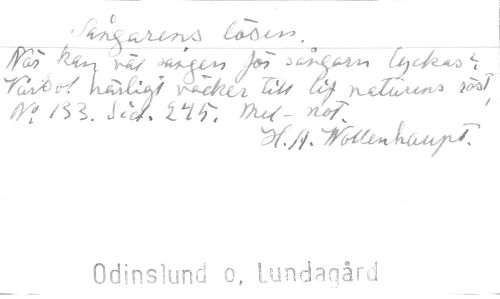 Sångarens lösen.
När kan väl sången för sångarn lyckas?
Vårsol härligt väcker till lif naturens röst,
No 133. Sid. 245. Mel-not.
H. A. Wollenhaupt.
Odinslund o, Lundagård